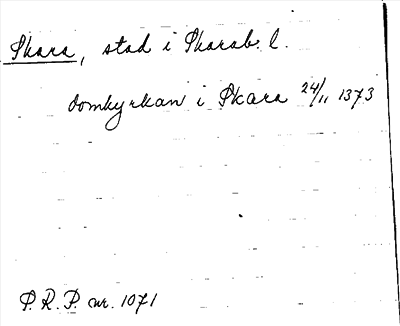 Skara, stad i Skarab. l.
domkyrkan i Skara 24/11 1373
P. R. P. nr. 1071